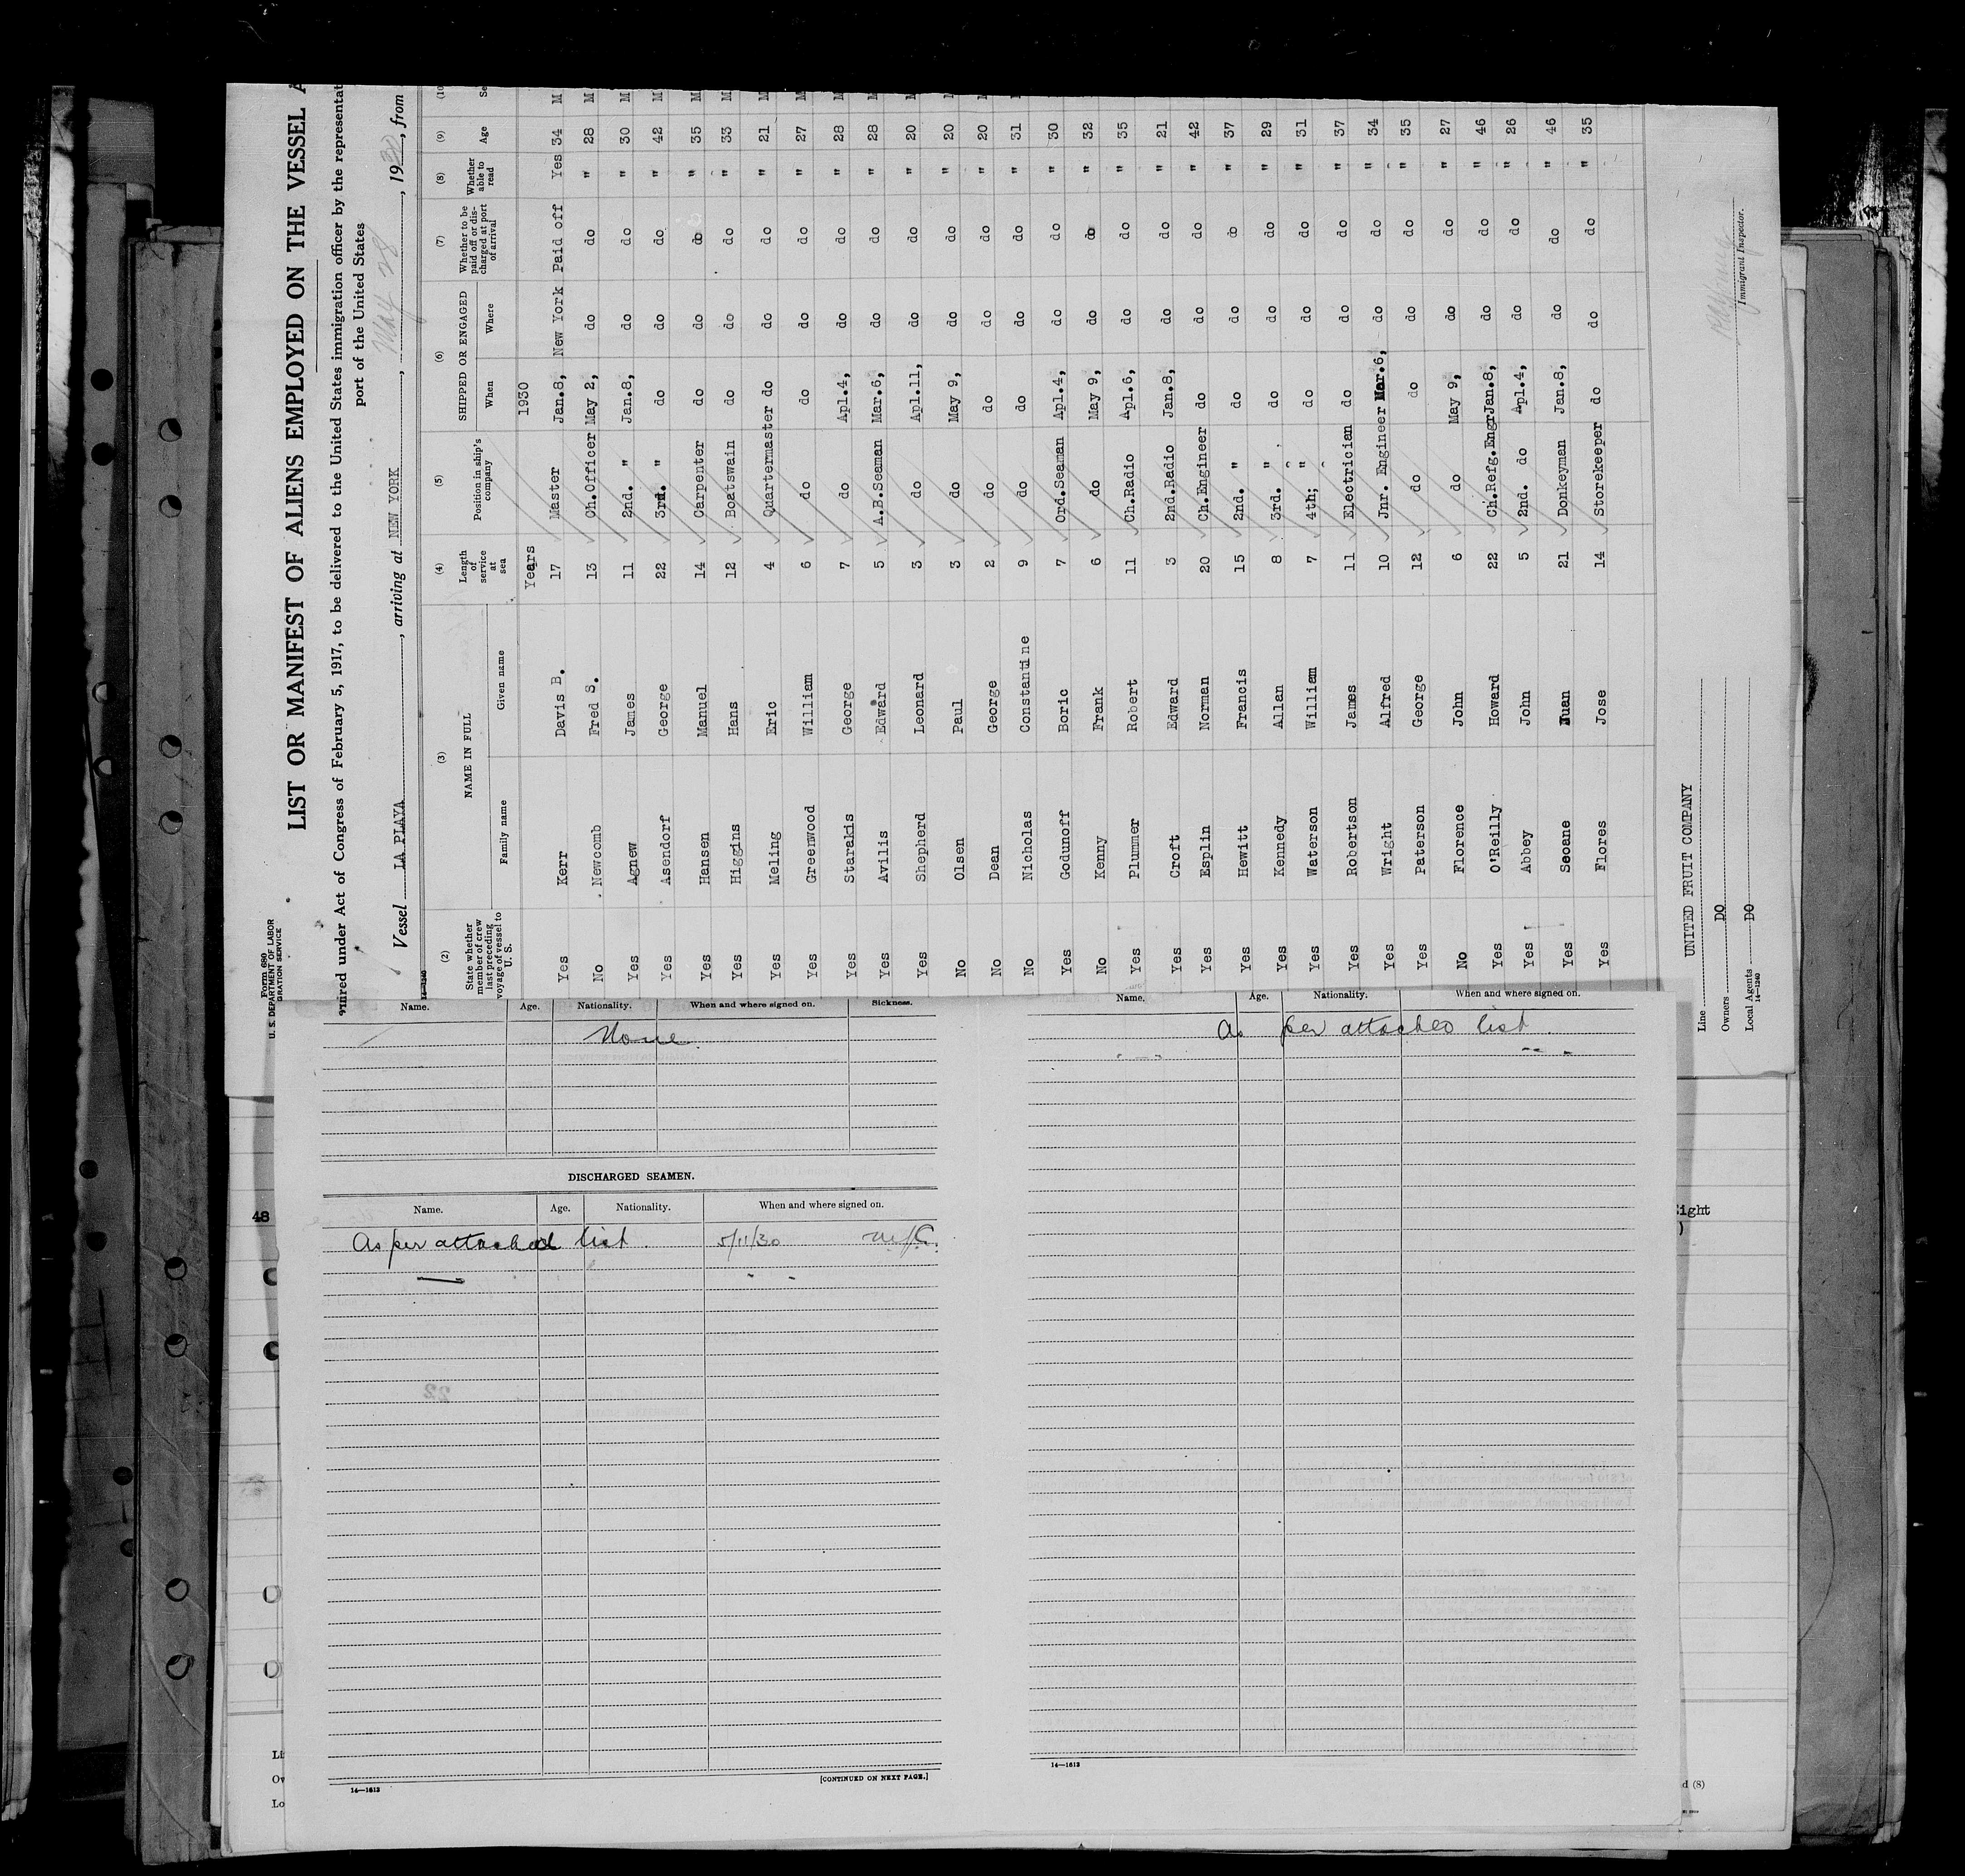 Form 680
U. S. DEPARTMENT OF LABOR
GRATION SERVICE
LIST OR MANIFEST OF ALIENS EMPLOYED ON THE VESSEL A
quired under Act of Congress of February 5, 1917, to be delivered to the United States immigration officer by the representat
port of the United States
Vessel LA PLAYA, arriving at NEW YORK, May 28, 1930, from
14—1240
(2) (3) (4) (5) (6) (7) (8) (9) (10
State whether member of crew last preceding voyage of vessel to U. S. NAME IN FULL Family name Given name Length of service at sea Position in ship's company SHIPPED OR ENGAGED When Where Whether to be paid off or discharged at port of arrival Whether able to read Age Se
Years 1930
Yes Kerr Davis B. 17 Master Jan.8, New York Paid off Yes 34 M
No Newcomb Fred S. 13 Ch.Officer May 2, do do " 28 M
Yes Agnew James 11 2nd. " Jan.8, do do " 30 M
Yes Asendorf George 22 3rd. " do do do " 42 M
Yes Hansen Manuel 14 Carpenter do do do " 35 M
Yes Higgins Hans 12 Boatswain do do do " 33 M
Yes Meling Eric 4 Quartermaster do do do " 21 M
Yes Greenwood William 6 do do do do " 27 M
Yes Starakis George 7 do Apl.4, do do " 28 M
Yes Avilis Edward 5 A.B.Seaman Mar.6, do do " 28 M
Yes Shepherd Leonard 3 do Apl.11, do do " 20 M
No Olsen Paul 3 do May 9, do do " 20 M
No Dean George 2 do do do do " 20 M
No Nicholas Constantine 9 do do do do " 31 M
Yes Godunoff Boric 7 Ord.Seaman Apl.4, do do " 30
No Kenny Frank 6 do May 9, do do " 32
Yes Plummer Robert 11 Ch.Radio Apl.6, do do " 35
Yes Croft Edward 3 2nd.Radio Jan.8, do do " 21
Yes Esplin Norman 20 Ch.Engineer do do do " 42
Yes Hewitt Francis 15 2nd. " do do do " 37
Yes Kennedy Allan 8 3rd. " do do do " 29
Yes Waterson William 7 4th; " do do do " 31
Yes Robertson James 11 Electrician do do do " 37
Yes Wright Alfred 10 Jnr. Engineer Mar.6, do do " 34
Yes Paterson George 12 do do do do " 35
No Florence John 6 do May 9, do do " 27
Yes O'Reilly Howard 22 Ch.Refg.Engr Jan.8, do do " 46
Yes Abbey John 5 2nd. do Apl.4, do do " 26
Yes Seoane Juan 21 Donkeyman Jan.8, do do " 46
Yes Flores Jose 14 Storekeeper do do do " 35
Line UNITED FRUIT COMPANY
Owners DO
Local Agents DO
14—1240
Immigrant Inspector.
Name. Age. Nationality. When and where signed on. Sickness.
None.
DISCHARGED SEAMEN.
Name. Age. Nationality. When and where signed on.
As per attached list. 5/11/30
14—1613
[CONTINUED ON NEXT PAGE.]
Name. Age. Nationality. When and where signed on.
As per attached list.
14—1613
48
Li
Ow
Lo
Eight
)
d (8)